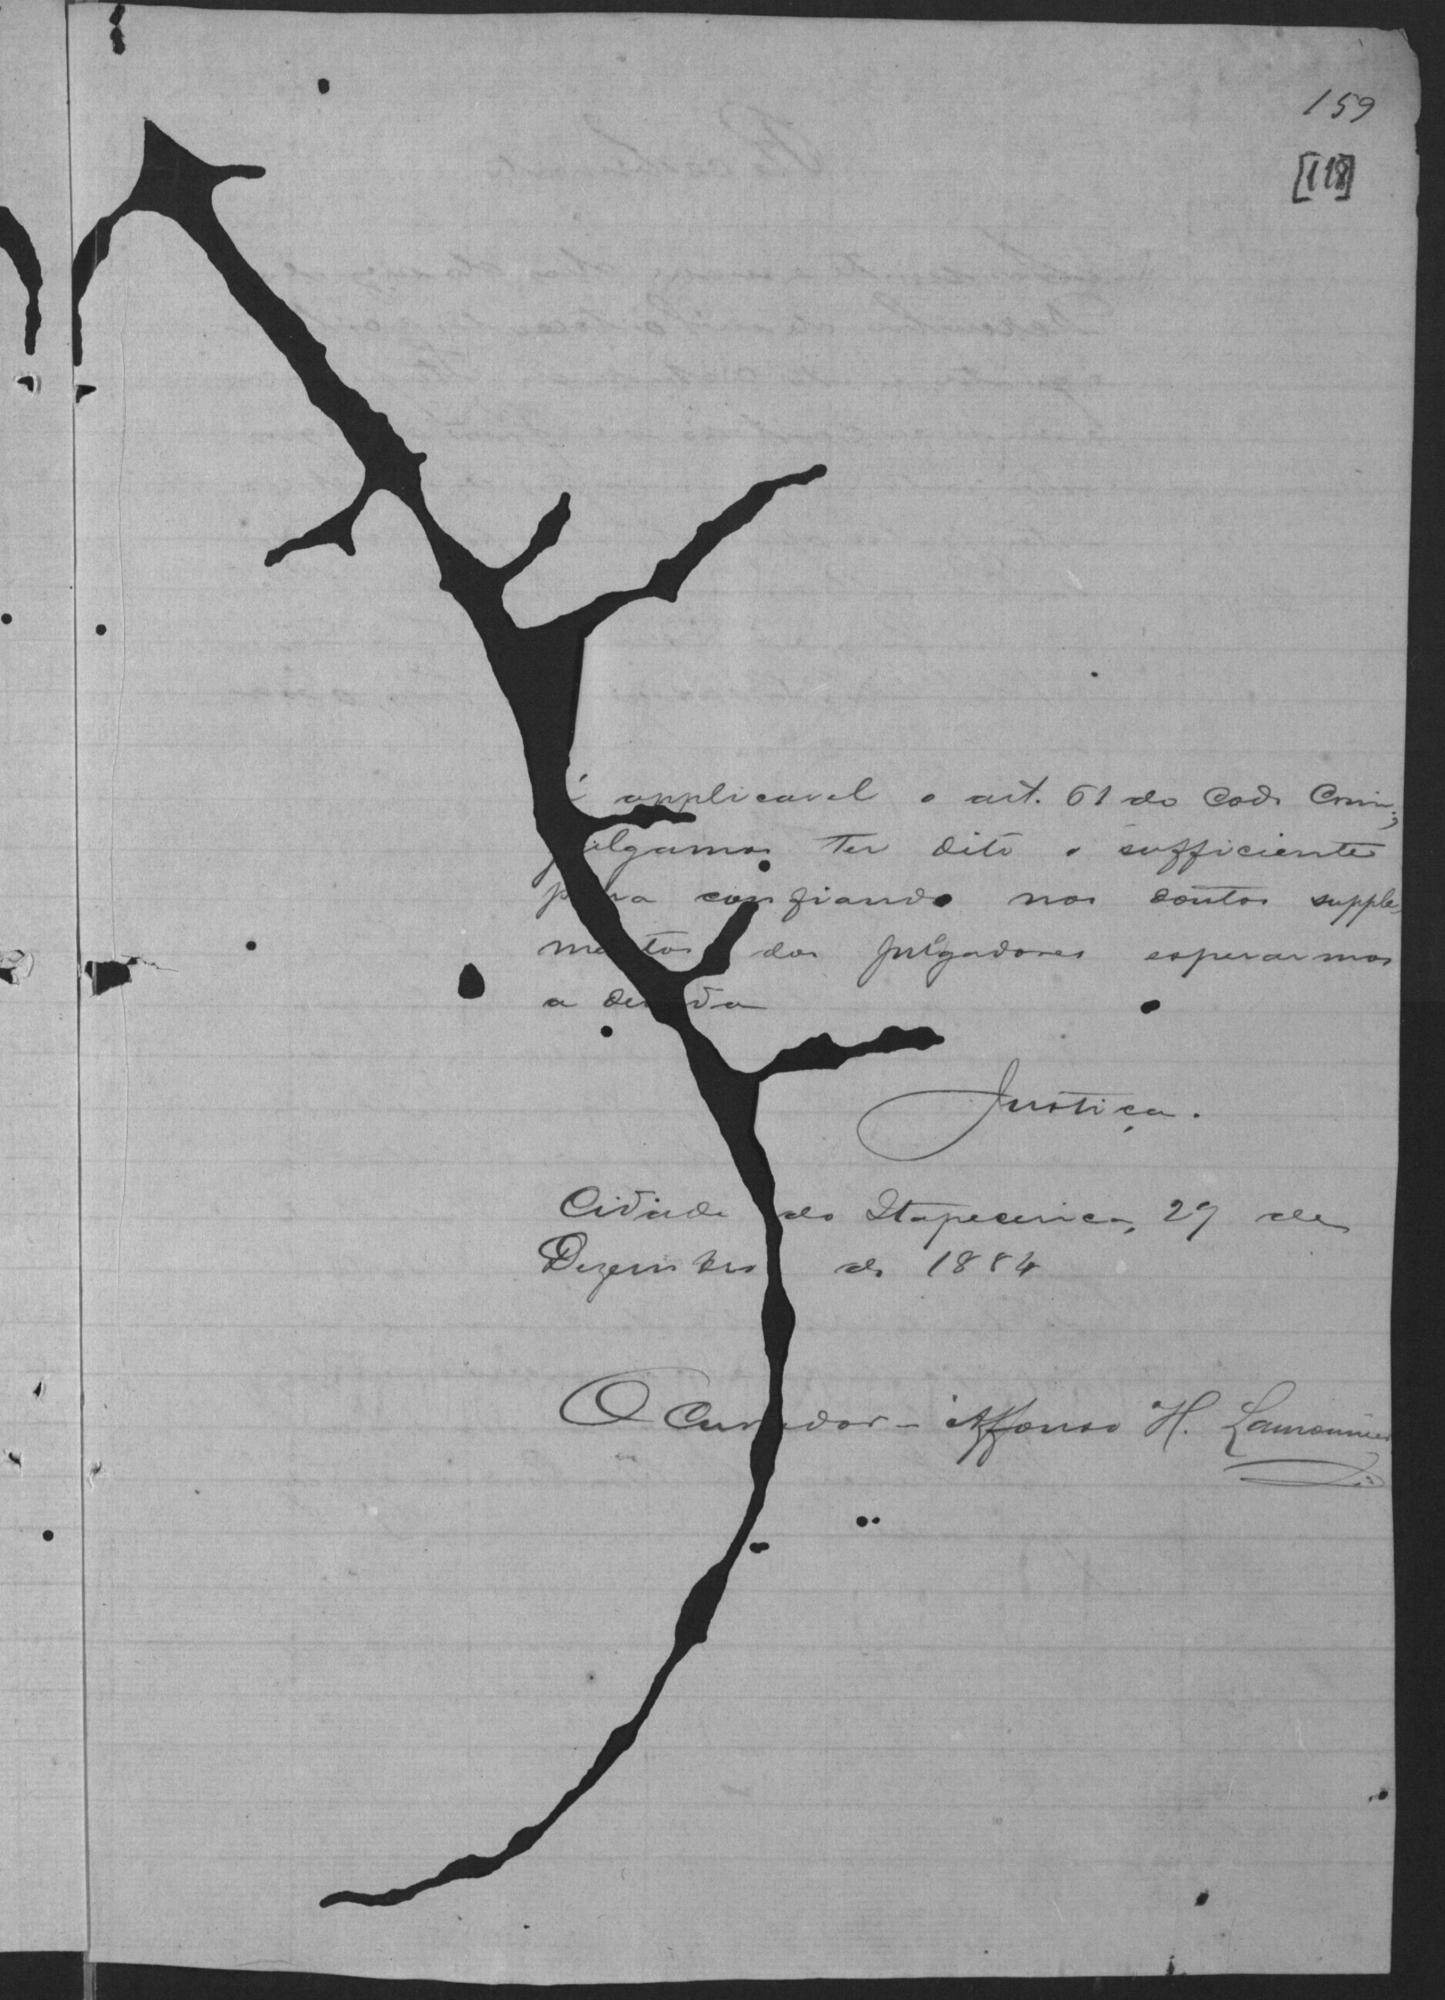 159
[118]
é applicavel o art. 61 do Cod. Crim.;
julgamos ter dito o sufficiente
para confiando nos doutos supple-
mentos dos julgadores esperarmos
a devida
Justiça.
Cidade do Itapecerica, 29 de
Dezembro de 1884
O Curador - Affonso H. Lamounier